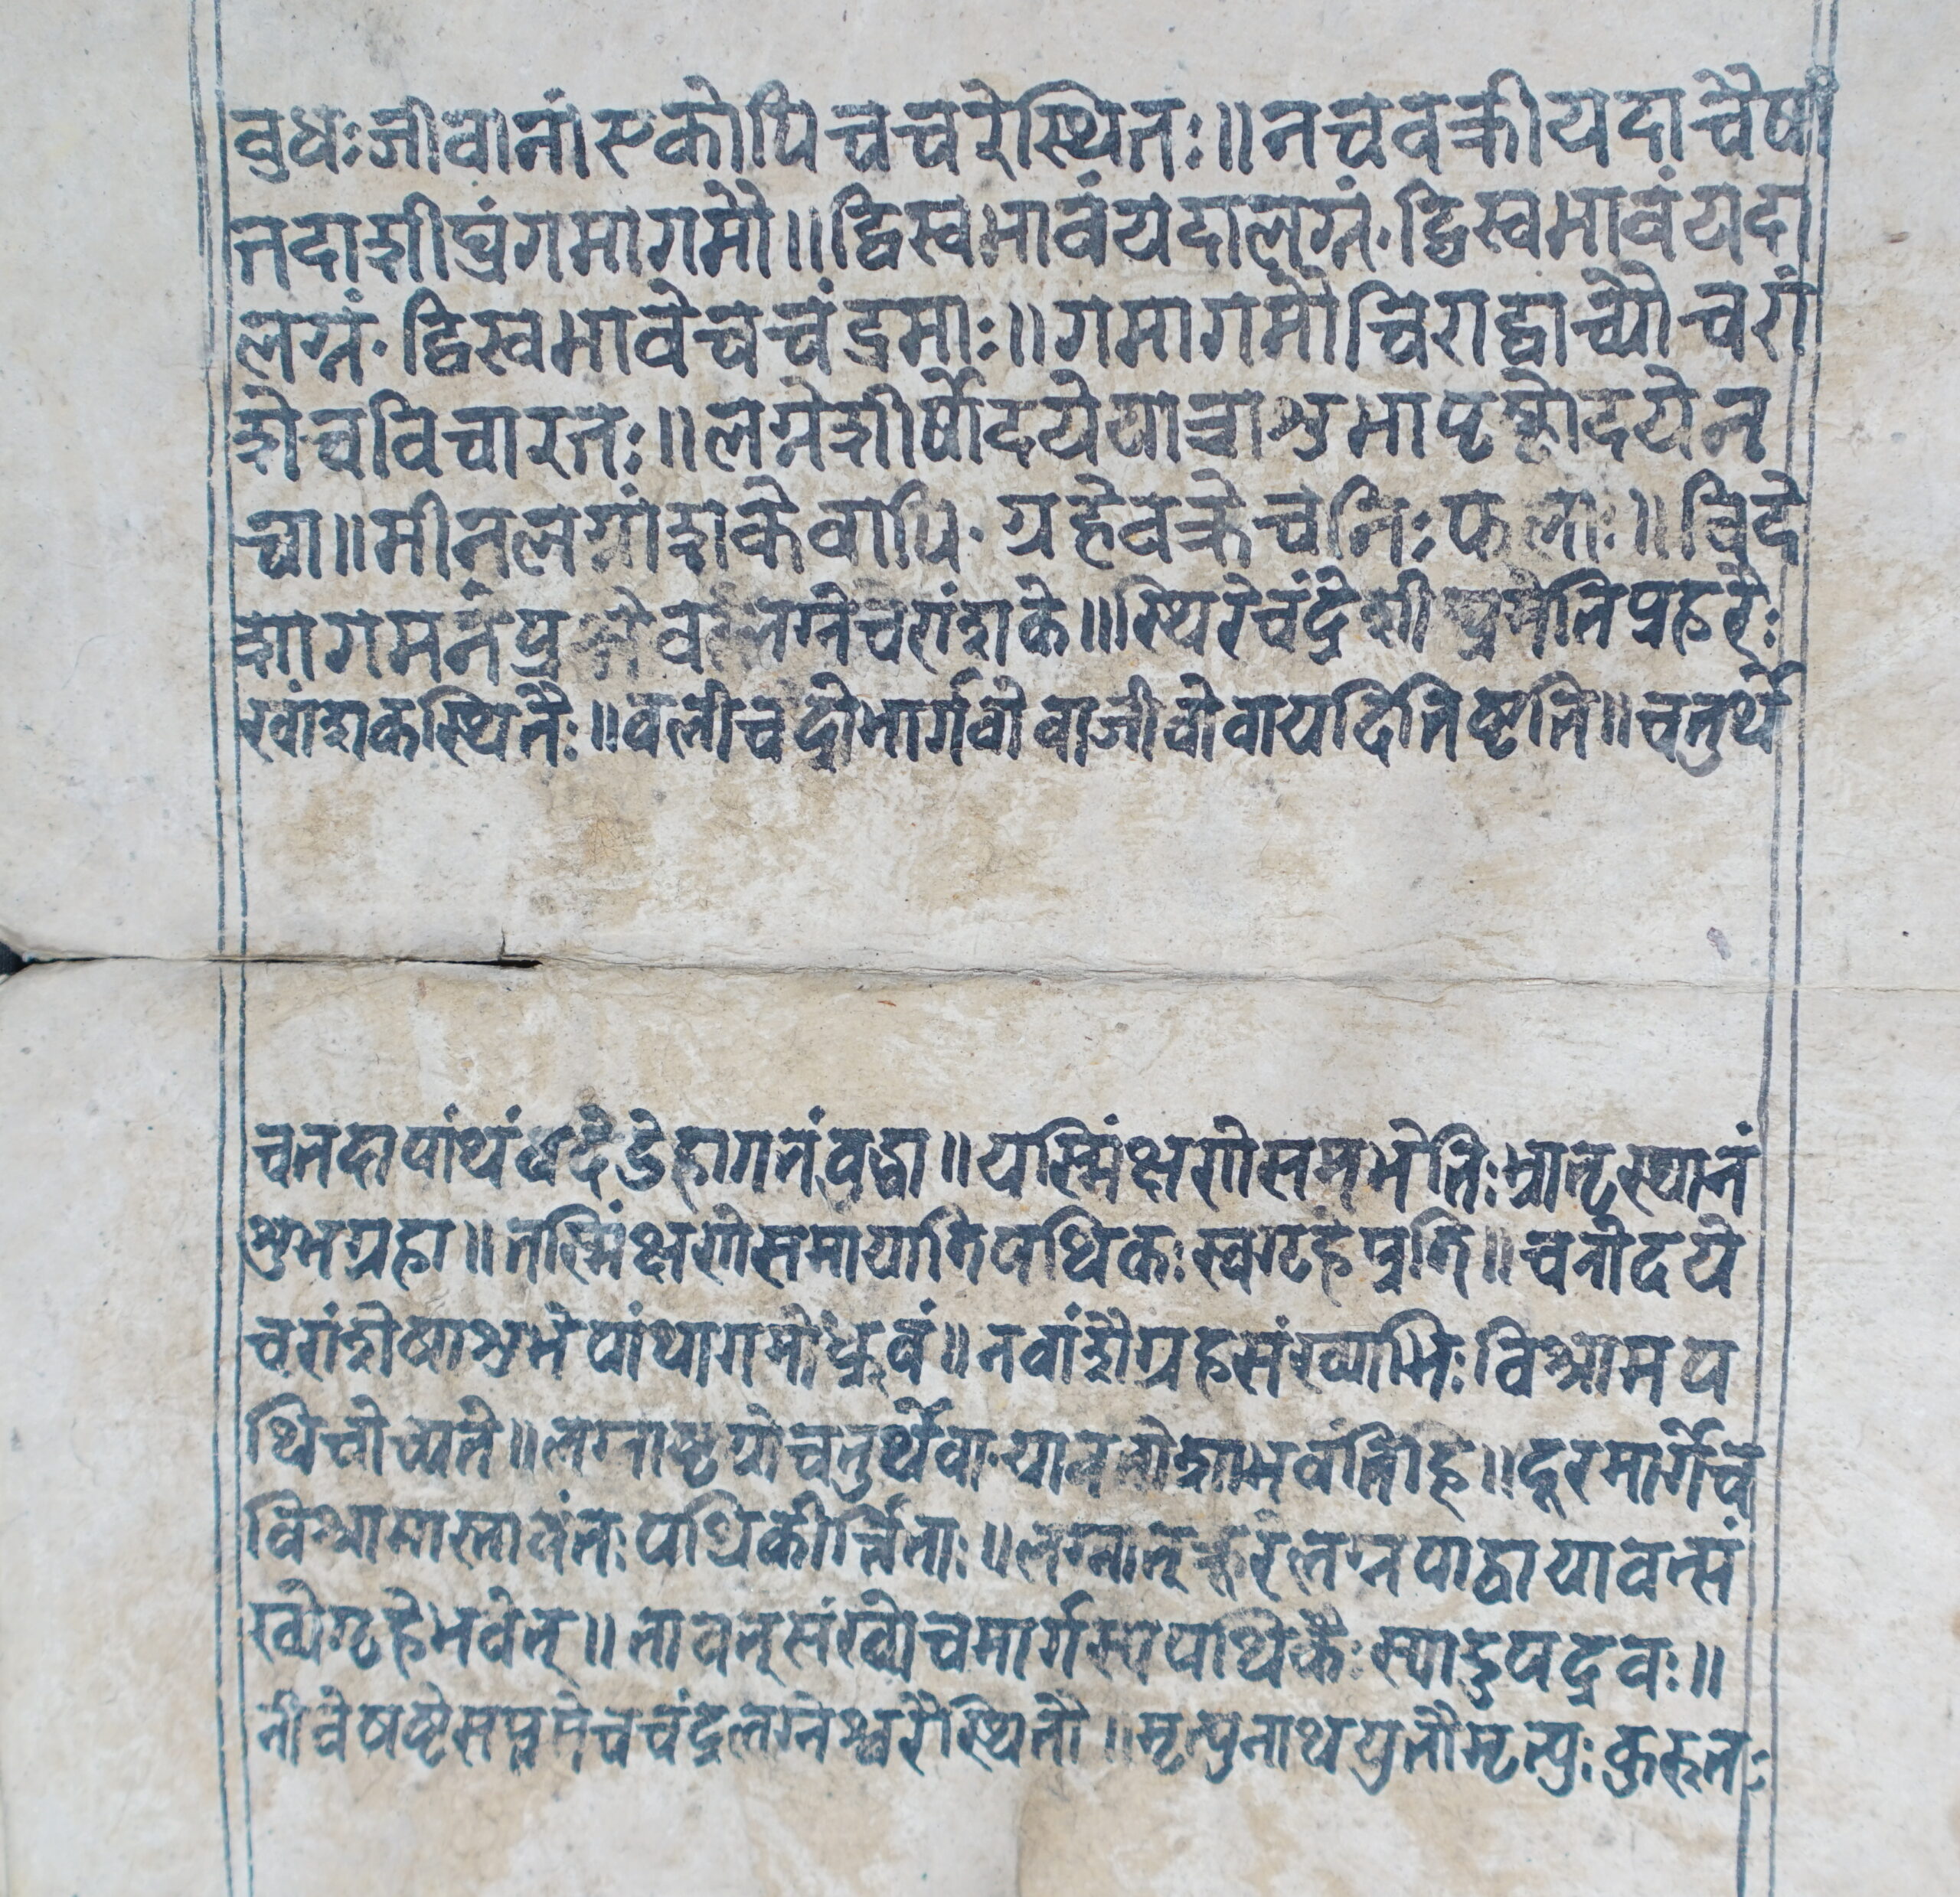 बुधःजीवानांएकोपिचचरेस्थितः॥नचवक्रीयदाचैषां
तदाशीघ्रंगमागमौ॥द्विस्वभावंयदालग्नं·द्विस्वभावंयदा
लग्नं·द्विस्वभावेचचंद्रमाः॥गमागमौचिराद्वाच्यौचरां
शेचविचारतः॥लग्नेशीर्षोदयेयात्राशुभापृष्ठोदयेन
चा॥मीनलग्नांशकेवापि·ग्रहेवक्रेचनिःफलाः॥विदे
शागमनंप्र वलग्नेचरांशके॥स्थिरेचंद्रेशीघ्रमेतिप्रहरैः
खांशकस्थितैः॥वलीचद्रोभार्गवोवाजीवोवायदितिष्टति॥चतुर्थे
चतदापांथंवदेद्गेहागतंवुद्धा॥यस्मिंक्षणेसमभेतिःभ्रातृस्थानं
शुभग्रहा॥तस्मिंक्षणेसमायातिपथिकःस्वगृहंप्रति॥चरोदये
चरांशेषाशुभेपांथागमोध्रुवं॥नवांशैग्रहसंख्याभिःविश्रामप
थितोच्यते॥लग्नाष्टयोचतुर्थेवा भवंतिहि॥दूरमार्गेच
विश्रामास्तावंतःपथिकीर्त्तिताः॥लग्नात्क्रूरंलग्नपाद्वायावत्सं
ख्येगृहेभवेत्॥तावत्संख्येचमार्गस्यपथिकैःस्यादुपद्रवः॥
नीचेषष्टेसप्तमेचचंद्रलग्नेश्वरैस्थितौ॥मृत्युनाथयुतौमृत्युःकुरुतः